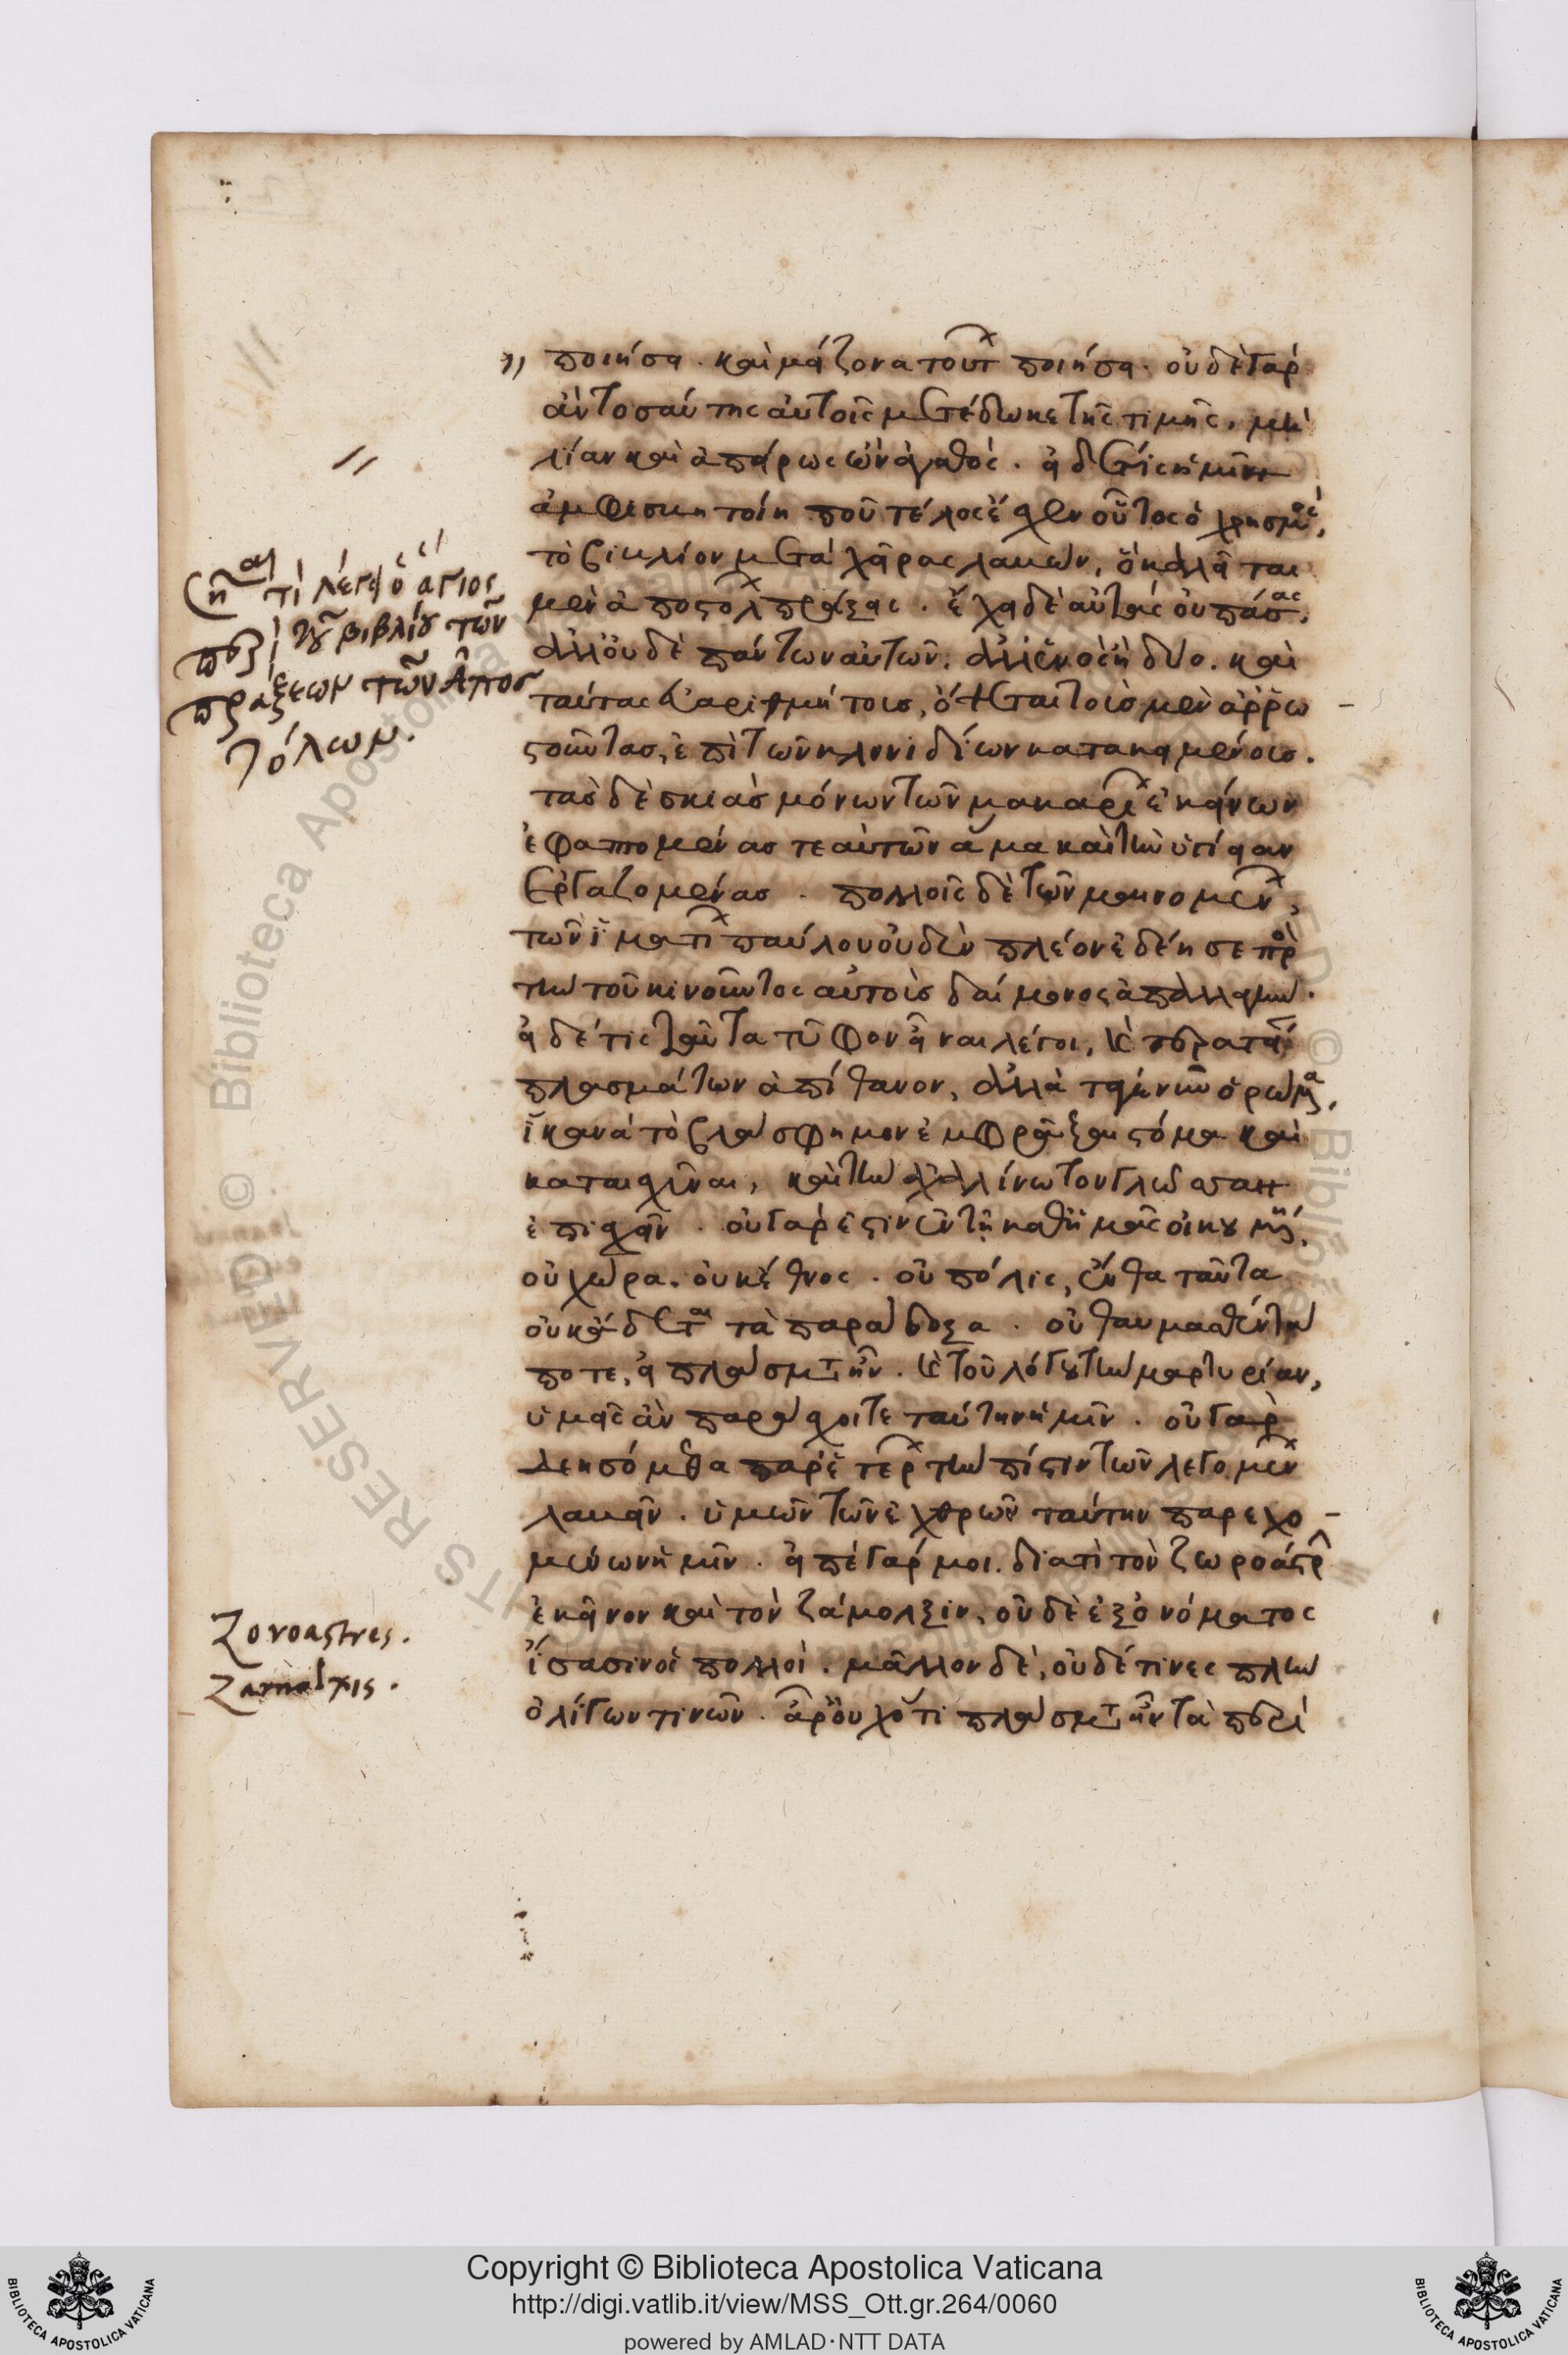 ποιήσει. καὶ μείζονα τούτων ποιήσει. οὐδὲ γὰρ
ἂν τοσαύτης αὐτοῖς μετέδωκε τῆς τιμῆς, μὴ
λίαν καὶ ἀπείρως ὢν ἀγαθός. εἰ δέ τις ἡμῖν
ἀμφισβητοίη ποῦ τέλος ἔσχεν οὗτος ὁ χρησμός,
τὸ βιβλίον μετὰ χεῖρας λαβὼν, ὃ καλεῖται
μὲν ἀποστόλων πράξεις. ἔχει δὲ αὐτὰς οὐ πάσας,
ἀλλ' οὐδὲ πάντων αὐτῶν. ἀλλ' ἑνὸς ἢ δύο. καὶ
ταύτας εὐαριθμήτους, ὄψεται τοὺς μὲν ἀρρω-
στοῦντας, ἐπὶ τῶν κλινιδίων κατακειμένους.
τὰς δὲ σκιὰς μόνων τῶν μακαρίων ἐκείνων
ἐφαπτομένας τε αὐτῶν ἅμα καὶ τὴν ὑγίειαν
ἐργαζομένας. πολλοῖς δὲ τῶν μαινομένων,
τῶν ἱματίων παύλου οὐδὲν πλέον ἐδέησε πρὸς
τὴν τοῦ κινοῦντος αὐτοὺς δαίμονος ἀπαλλαγήν.
εἰ δέ τις ταῦτα τῦφον εἶναι λέγοι, καὶ τερατείαν
πλασμάτων ἀπίθανον, ἀλλὰ τά γε νῦν ὁρώμενα,
ἱκανὰ τὸ βλάσφημον ἐμφράξαι στόμα καὶ
καταισχῦναι, καὶ τὴν ἀχαλίνωτον γλῶσσαν
ἐπισχεῖν. οὐ γάρ ἐστιν ἐν τῇ καθ' ἡμᾶς οἰκουμένῃ,
οὐ χώρα. οὐκ ἔθνος. οὐ πόλις, ἔνθα ταῦτα
οὐκ ᾄδεται τὰ παράδοξα. οὐ θαυμασθέντα
ποτε, εἰ πλάσματα ἦν. καὶ τοῦ λόγου τὴν μαρτυρίαν,
ὑμεῖς ἂν παράσχοιτε ταύτην ἡμῖν. οὐ γὰρ
δεησόμεθα παρ' ἑτέρων τὴν πίστιν τῶν λεγομένων
λαβεῖν. ὑμῶν τῶν ἐχθρῶν ταύτην παρεχο-
μένων ἡμῖν. εἰπὲ γάρ μοι. διατὶ τὸν ζωροάστρην
ἐκεῖνον καὶ τὸν ζάμολξιν, οὐδὲ ἐξ ὀνόματος
ἴσασιν οἱ πολλοί. μᾶλλον δὲ, οὐδέ τινες πλὴν
ὀλίγων τινῶν. ἆρ' οὐχ ὅτι πλάσματα ἦν τὰ περὶ
τί λέγει ὁ ἅγιος
περὶ τοῦ βιβλίου τῶν
πράξεων τῶν Ἀποσ
τόλων.
Zoroastres.
Zamolxis.
Copyright © Biblioteca Apostolica Vaticana
http://digi.vatlib.it/view/MSS_Ott.gr.264/0060
powered by AMLAD·NTT DATA
BIBLIOTECA APOSTOLICA VATICANA
BIBLIOTECA APOSTOLICA VATICANA